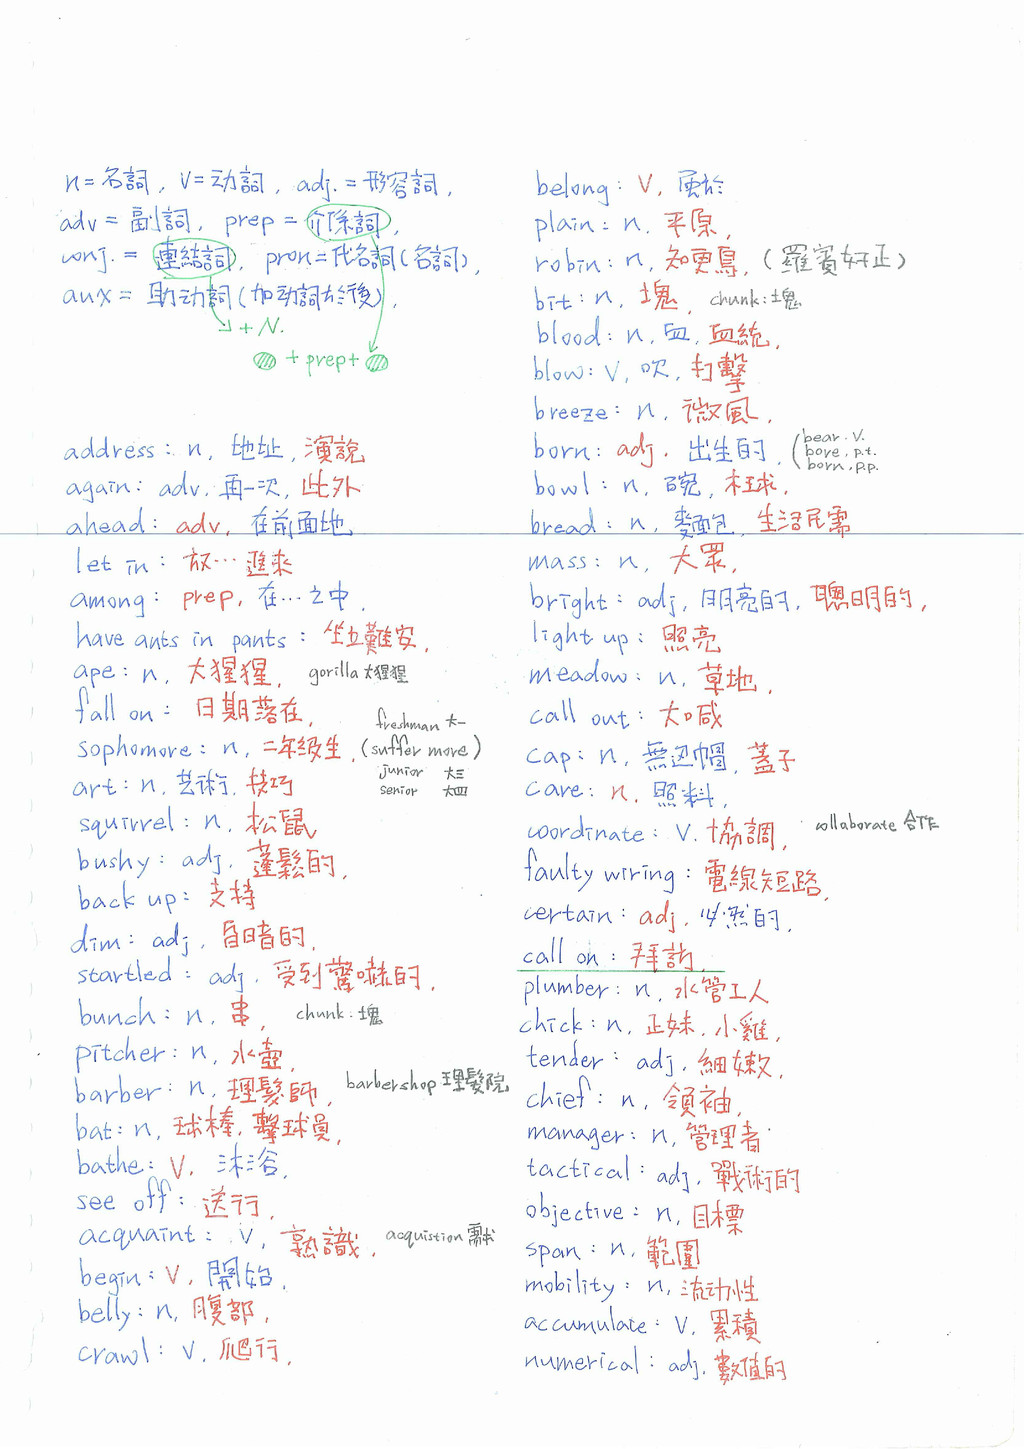 n=名詞, V=动詞, adj.=形容詞,
adv=副詞, prep=介係詞,
conj.=連結詞, pron=代名詞(名詞),
aux=助动詞(加动詞於後),
+N.
+prep+
address: n, 地址, 演說
again: adv. 再一次, 此外
ahead: adv, 在前面地
let in: 放…進來
among: prep, 在…之中,
have ants in pants: 坐立難安,
ape: n, 大猩猩, gorilla大猩猩
fall on: 日期落在,
freshman 大一
sophomore: n, 二年級生, (suffer more)
junior 大三
senior 大四
art: n, 芸術, 技巧
squirrel: n, 松鼠
bushy: adj, 蓬鬆的,
back up: 支持
dim: adj, 昏暗的,
startled: adj, 受到驚嚇的,
bunch: n, 串, chunk:塊
pitcher: n, 水壺,
barber: n, 理髮師, barbershop 理髮院
bat: n, 球棒, 擊球員,
bathe: V, 沐浴,
see off: 送行,
acquaint: V, 熟識, acquistion 需求
begin: V, 開始,
belly: n, 腹部,
crawl: V, 爬行,
belong: V, 屬於
plain: n, 平原,
robin: n, 知更鳥, (羅賓好正)
bit: n, 塊, chunk:塊
blood: n, 血, 血統,
blow: V, 吹, 打擊
breeze: n, 微風,
born: adj, 出生的, (bear. V.
bore. p.t.
born. p.p.
bowl: n, 碗, 木球,
bread: n, 麵包, 生活民需
mass: n, 大眾,
bright: adj, 明亮的, 聰明的,
light up: 照亮
meadow: n, 草地,
call out: 大喊
cap: n, 無边帽, 蓋子
care: n, 照料,
coordinate: V. 協調, collaborate 合作
faulty wiring: 電線短路,
certain: adj, 必然的,
call on: 拜訪,
plumber: n, 水管工人
chick: n, 正妹, 小雞,
tender: adj, 細嫩,
chief: n, 領袖,
manager: n, 管理者
tactical: adj, 戰術的
objective: n, 目標
span: n, 範圍
mobility: n, 流动性
accumulate: V, 累積
numerical: adj, 數值的